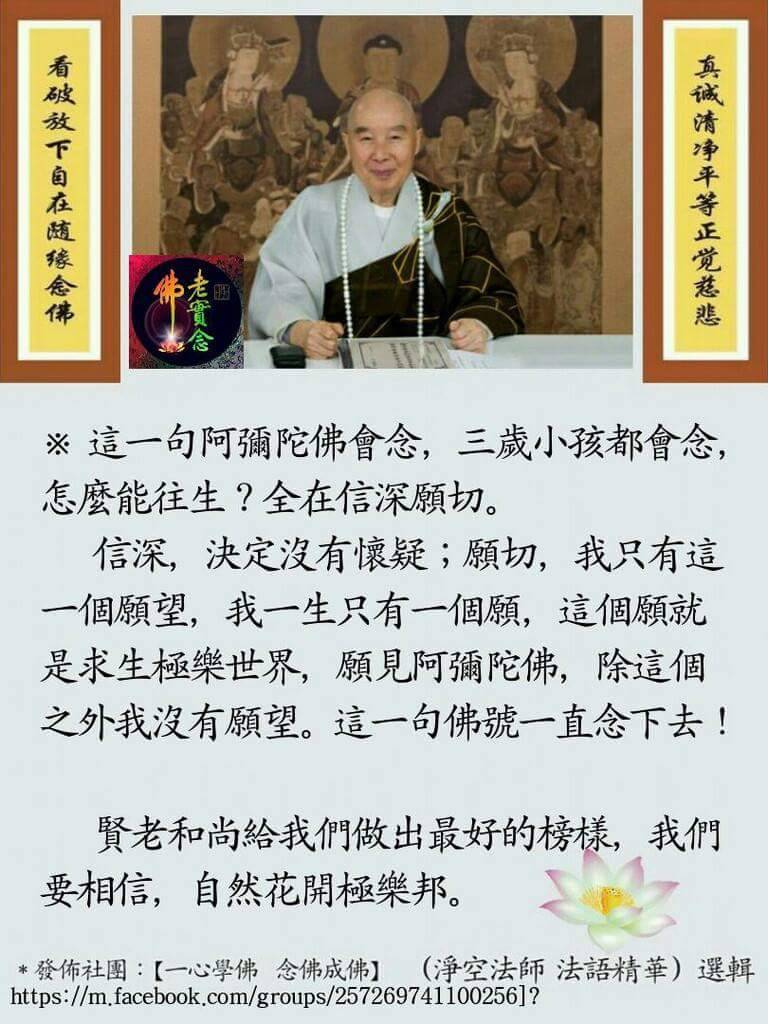 真誠清净平等正觉慈悲
看破放下自在随缘念佛
老實念
佛
※ 這一句阿彌陀佛會念，三歲小孩都會念，
怎麼能往生？全在信深願切。
信深，決定沒有懷疑；願切，我只有這
一個願望，我一生只有一個願，這個願就
是求生極樂世界，願見阿彌陀佛，除這個
之外我沒有願望。這一句佛號一直念下去！
賢老和尚給我們做出最好的榜樣，我們
要相信，自然花開極樂邦。
＊發佈社團：【一心學佛 念佛成佛】 （淨空法師 法語精華）選輯
https://m.facebook.com/groups/257269741100256]?